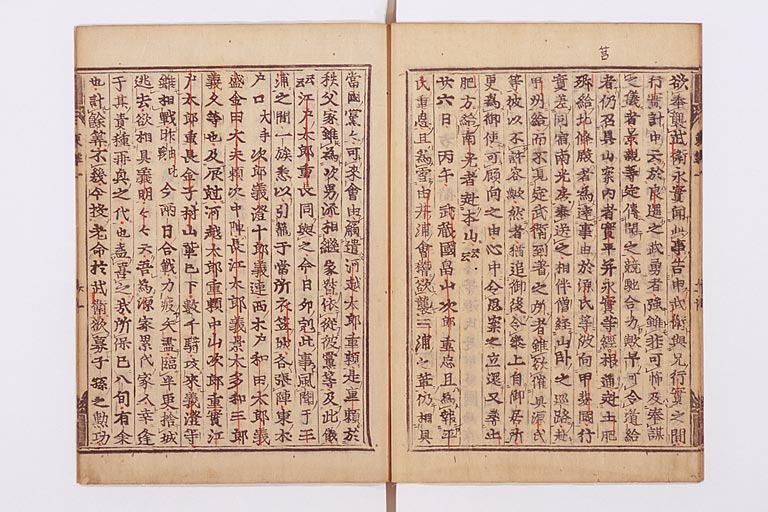 筥
欲奉襲武衛永實聞此事告申武衛與兄行實之間
行實計申云於良暹之武勇者強雖非可怖及奉謀
之儀者景親等定傳聞之競馳合力歟早可令遁給
者仍召具山案内者實平并永實等經根通赴土肥
郷給北條殿者為達事由於源氏等被向甲斐國行
實差同宿南光房奉送之相伴僧經山臥之巡路赴
甲州給而不見定武衛到著之所者雖欲催具源氏
等彼以不許容歟然者猶追御後令參上自御居所
更為御使可顧向之由心中令思案之立還又尋土
肥方給南光者赴本山云々
廿六日 丙午 武蔵國畠山次郎重忠且為報平
氏重恩且為雪由井浦會稽欲襲三浦之輩仍相具
當國黨々可來會由觸遣河越太郎重頼是重頼於
秩父家雖為次男流相継家督依從彼黨等及此儀
云々江戸太郎重長同與之今日卯剋此事風聞于三
浦之間一族悉以引籠于當所衣笠城各張陣東木
戸口大手 次郎義澄十郎義連西木戸和田太郎義
盛金田大夫頼次中陣長江太郎義景大多和三郎
義久等也及辰剋河越太郎重頼中山次郎重實江
戸太郎重長金子村山輩已下數千騎攻來義澄等
雖相戰昨由比今兩日合戰力疲矢盡臨半更捨城
逃去欲相具義明々々云吾為源家累代家人幸逢
于其貴種再興之代也盍喜之哉所保已八旬有余
也計餘算不幾今投老命於武衛欲募子孫之勲功